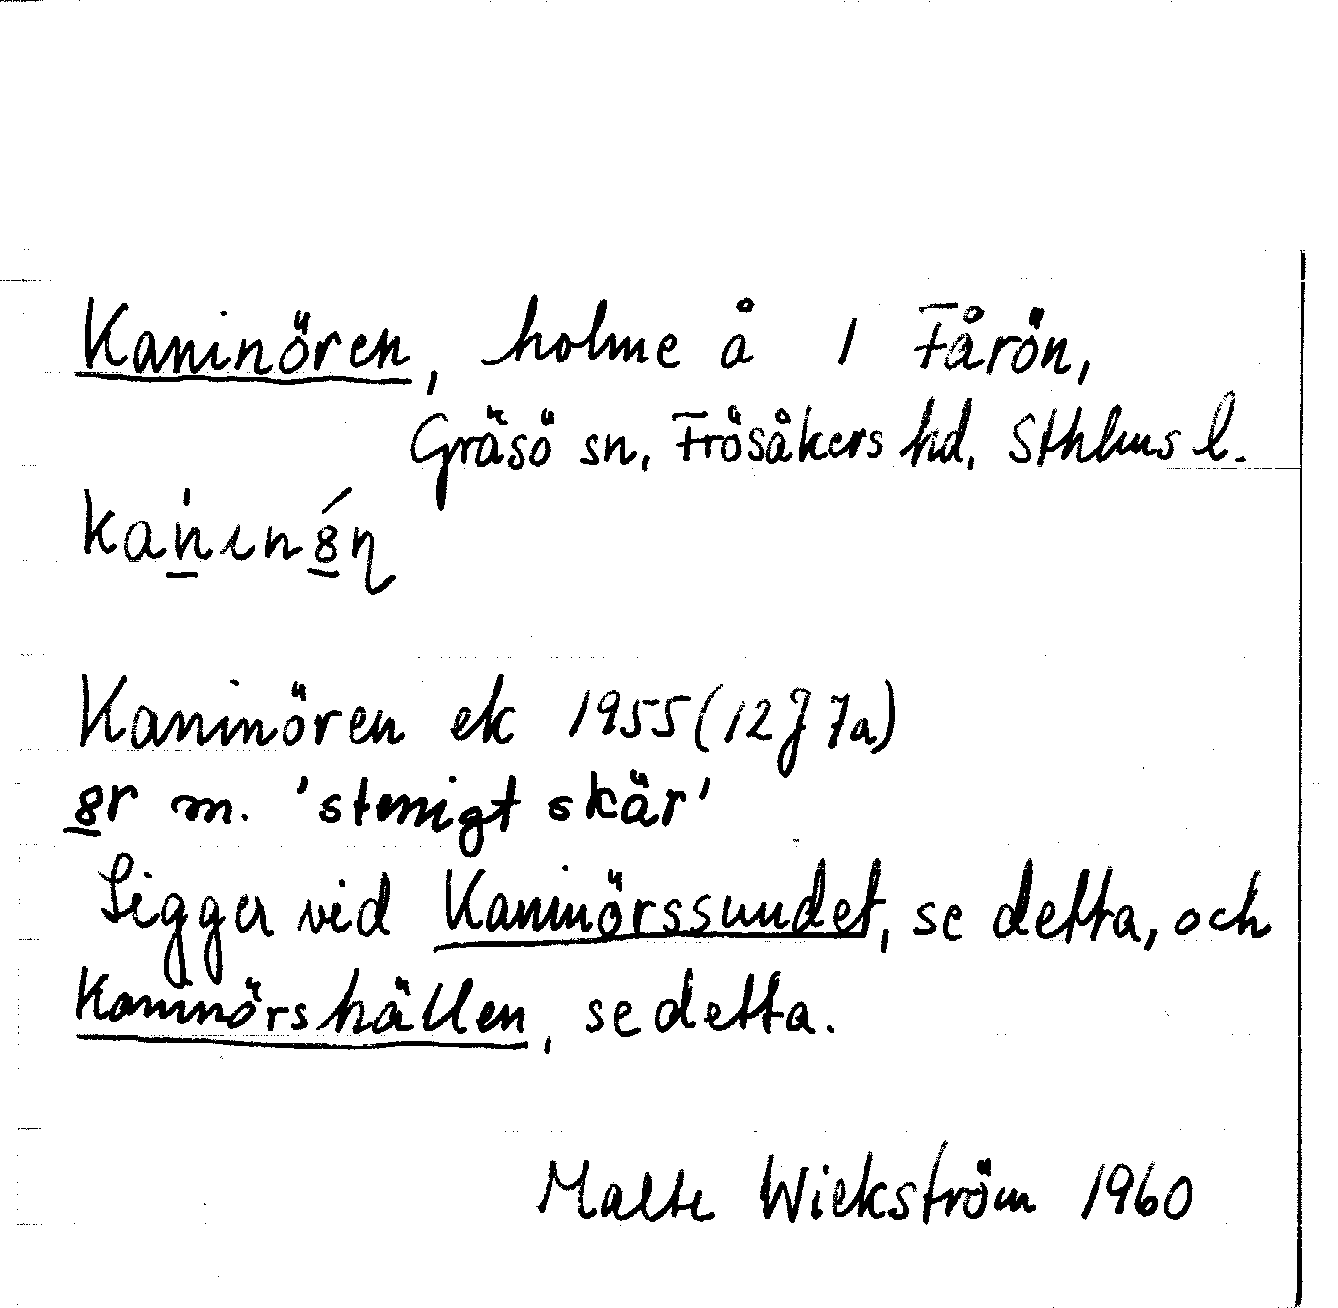 Kaninören, holme å 1 Fårön,
Gräsö sn, Frösåkers hd, Sthlms l.
Kaninören ek 1955 (12J 7a)
8r m. 'stenigt skär'
Ligger vid Kaninörssundet, se detta, och
Kaninörshällen, se detta.
Malte Wickström 1960